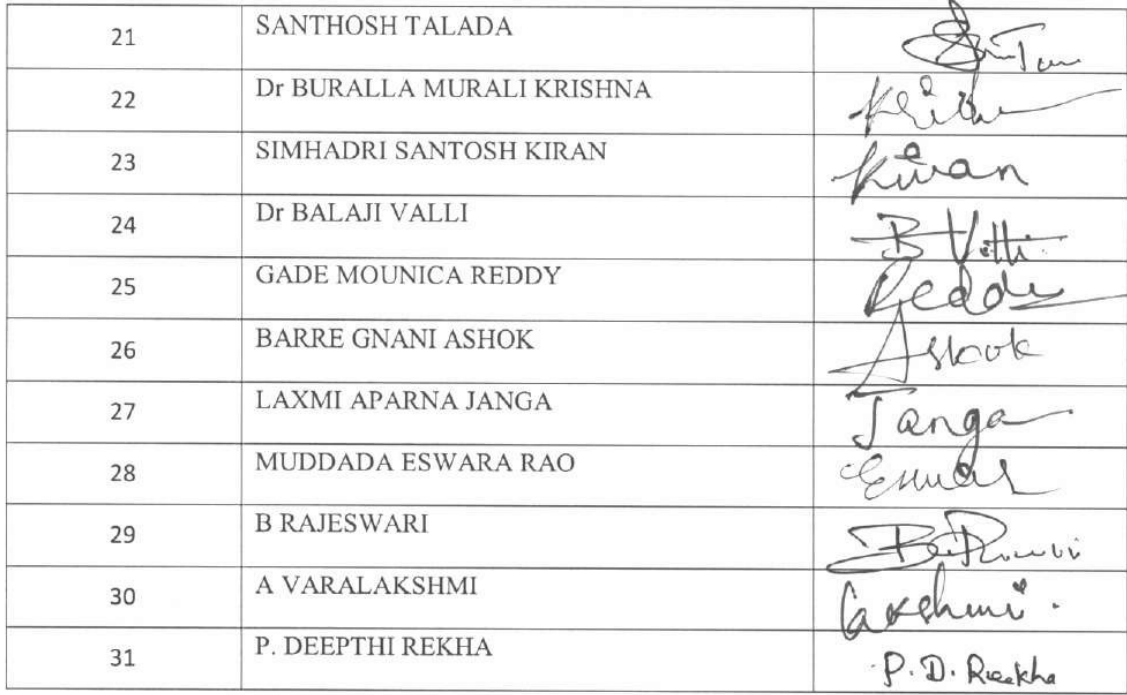 21 SANTHOSH TALADA
22 Dr BURALLA MURALI KRISHNA
23 SIMHADRI SANTOSH KIRAN Kiran
24 Dr BALAJI VALLI B
25 GADE MOUNICA REDDY Reddy
26 BARRE GNANI ASHOK Ashok
27 LAXMI APARNA JANGA Janga
28 MUDDADA ESWARA RAO
29 B RAJESWARI
30 A VARALAKSHMI Lakshmi
31 P. DEEPTHI REKHA P. D. Reekha